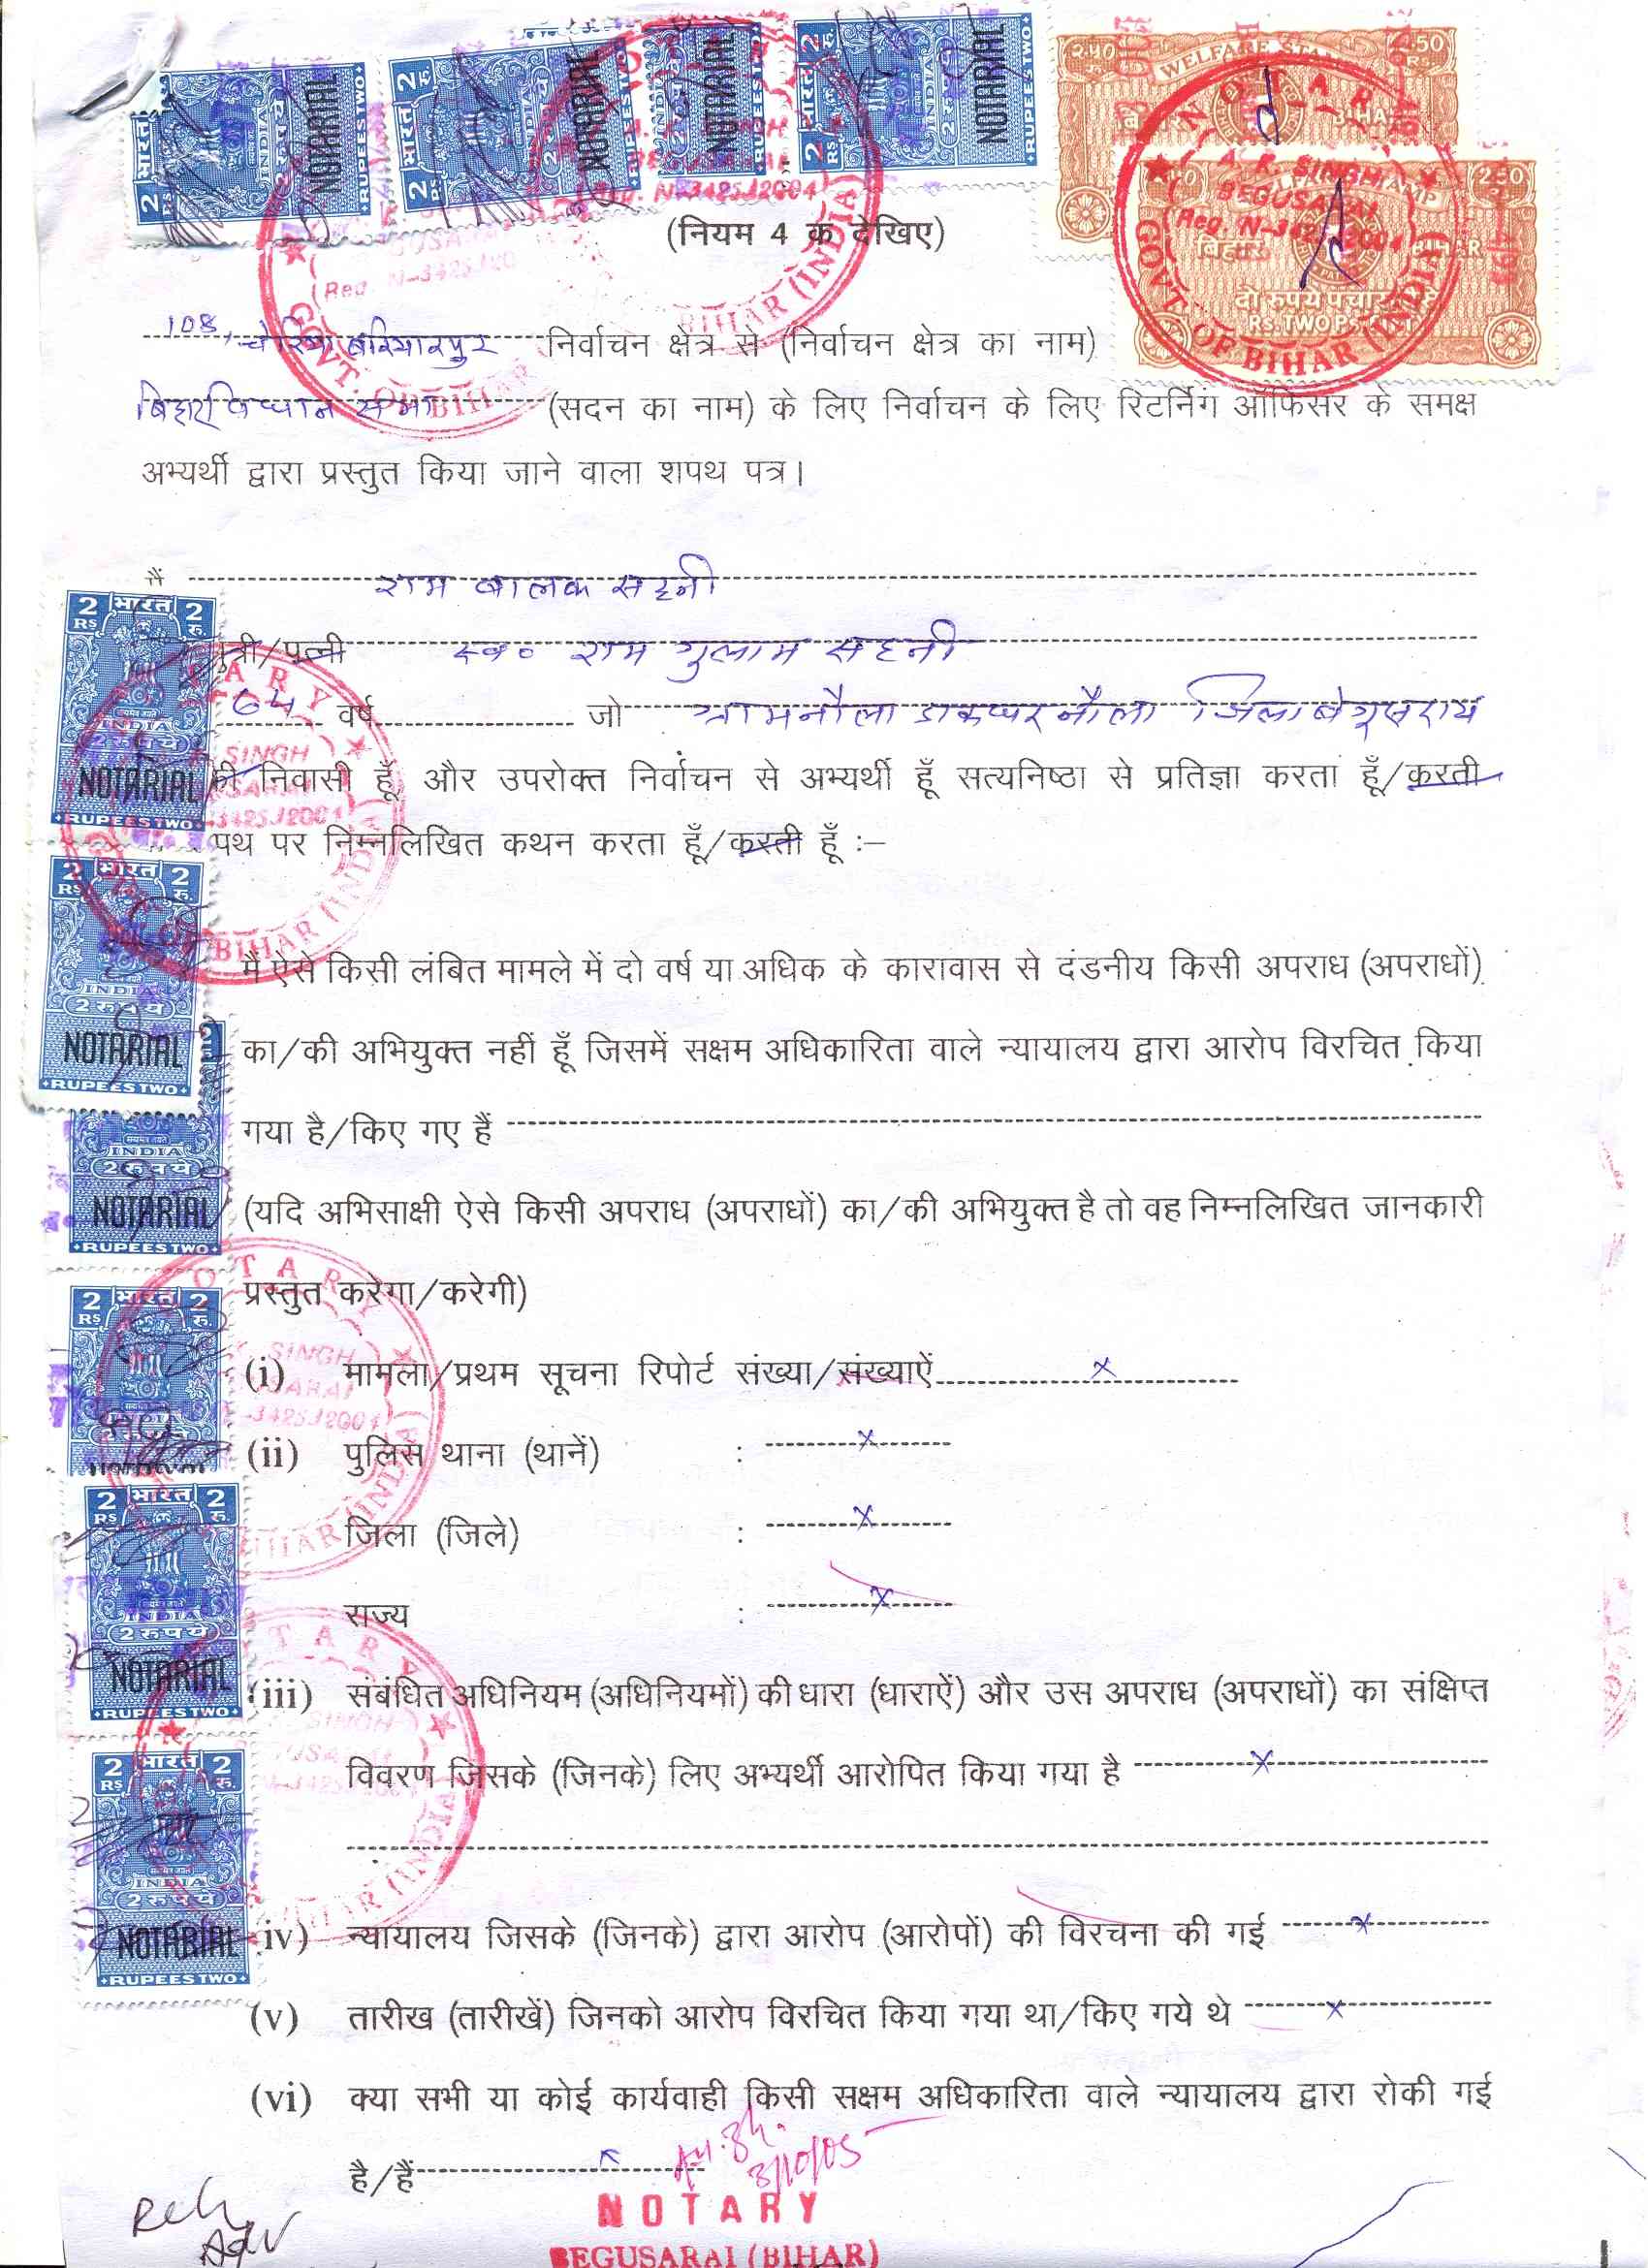 2 RS भारत 2 रु. INDIA 2 रुपये NOTARIAL RUPEES TWO
2 RS भारत 2 रु. INDIA 2 रुपये NOTARIAL RUPEES TWO
NOTARIAL
2 RS भारत 2 रु. INDIA NOTARIAL RUPEES TWO
2.50 WELFARE STAMP 2.50 RS. BIHAR
NOTARY
A. R. SINGH
BEGUSARAI
Reg. N-3425/2004
GOVT. OF BIHAR (INDIA)
बिहार BIHAR
दो रुपये पचास
RS. TWO P.
(नियम 4 क देखिए)
108, चेरिया बरियारपुर निर्वाचन क्षेत्र से (निर्वाचन क्षेत्र का नाम)
बिहार विधान सभा (सदन का नाम) के लिए निर्वाचन के लिए रिटर्निंग ऑफिसर के समक्ष
अभ्यर्थी द्वारा प्रस्तुत किया जाने वाला शपथ पत्र।
मैं राम बालक सहनी
पुत्री/पत्नी स्व० राम गुलाम सहनी
64 वर्ष जो ग्राम नौला डाकघर नौला जिला बेगूसराय
की निवासी हूँ और उपरोक्त निर्वाचन से अभ्यर्थी हूँ सत्यनिष्ठा से प्रतिज्ञा करता हूँ/करती
पथ पर निम्नलिखित कथन करता हूँ/करती हूँ :–
मैं ऐसे किसी लंबित मामले में दो वर्ष या अधिक के कारावास से दंडनीय किसी अपराध (अपराधों)
का/की अभियुक्त नहीं हूँ जिसमें सक्षम अधिकारिता वाले न्यायालय द्वारा आरोप विरचित किया
गया है/किए गए हैं
(यदि अभिसाक्षी ऐसे किसी अपराध (अपराधों) का/की अभियुक्त है तो वह निम्नलिखित जानकारी
प्रस्तुत करेगा/करेगी)
(i) मामला/प्रथम सूचना रिपोर्ट संख्या/संख्याऐं x
(ii) पुलिस थाना (थानें) : x
जिला (जिले) : x
राज्य : x
(iii) संबंधित अधिनियम (अधिनियमों) की धारा (धाराऐं) और उस अपराध (अपराधों) का संक्षिप्त
विवरण जिसके (जिनके) लिए अभ्यर्थी आरोपित किया गया है x
(iv) न्यायालय जिसके (जिनके) द्वारा आरोप (आरोपों) की विरचना की गई x
(v) तारीख (तारीखें) जिनको आरोप विरचित किया गया था/किए गये थे x
(vi) क्या सभी या कोई कार्यवाही किसी सक्षम अधिकारिता वाले न्यायालय द्वारा रोकी गई
है/हैं x
3/10/05
NOTARY
BEGUSARAI (BIHAR)